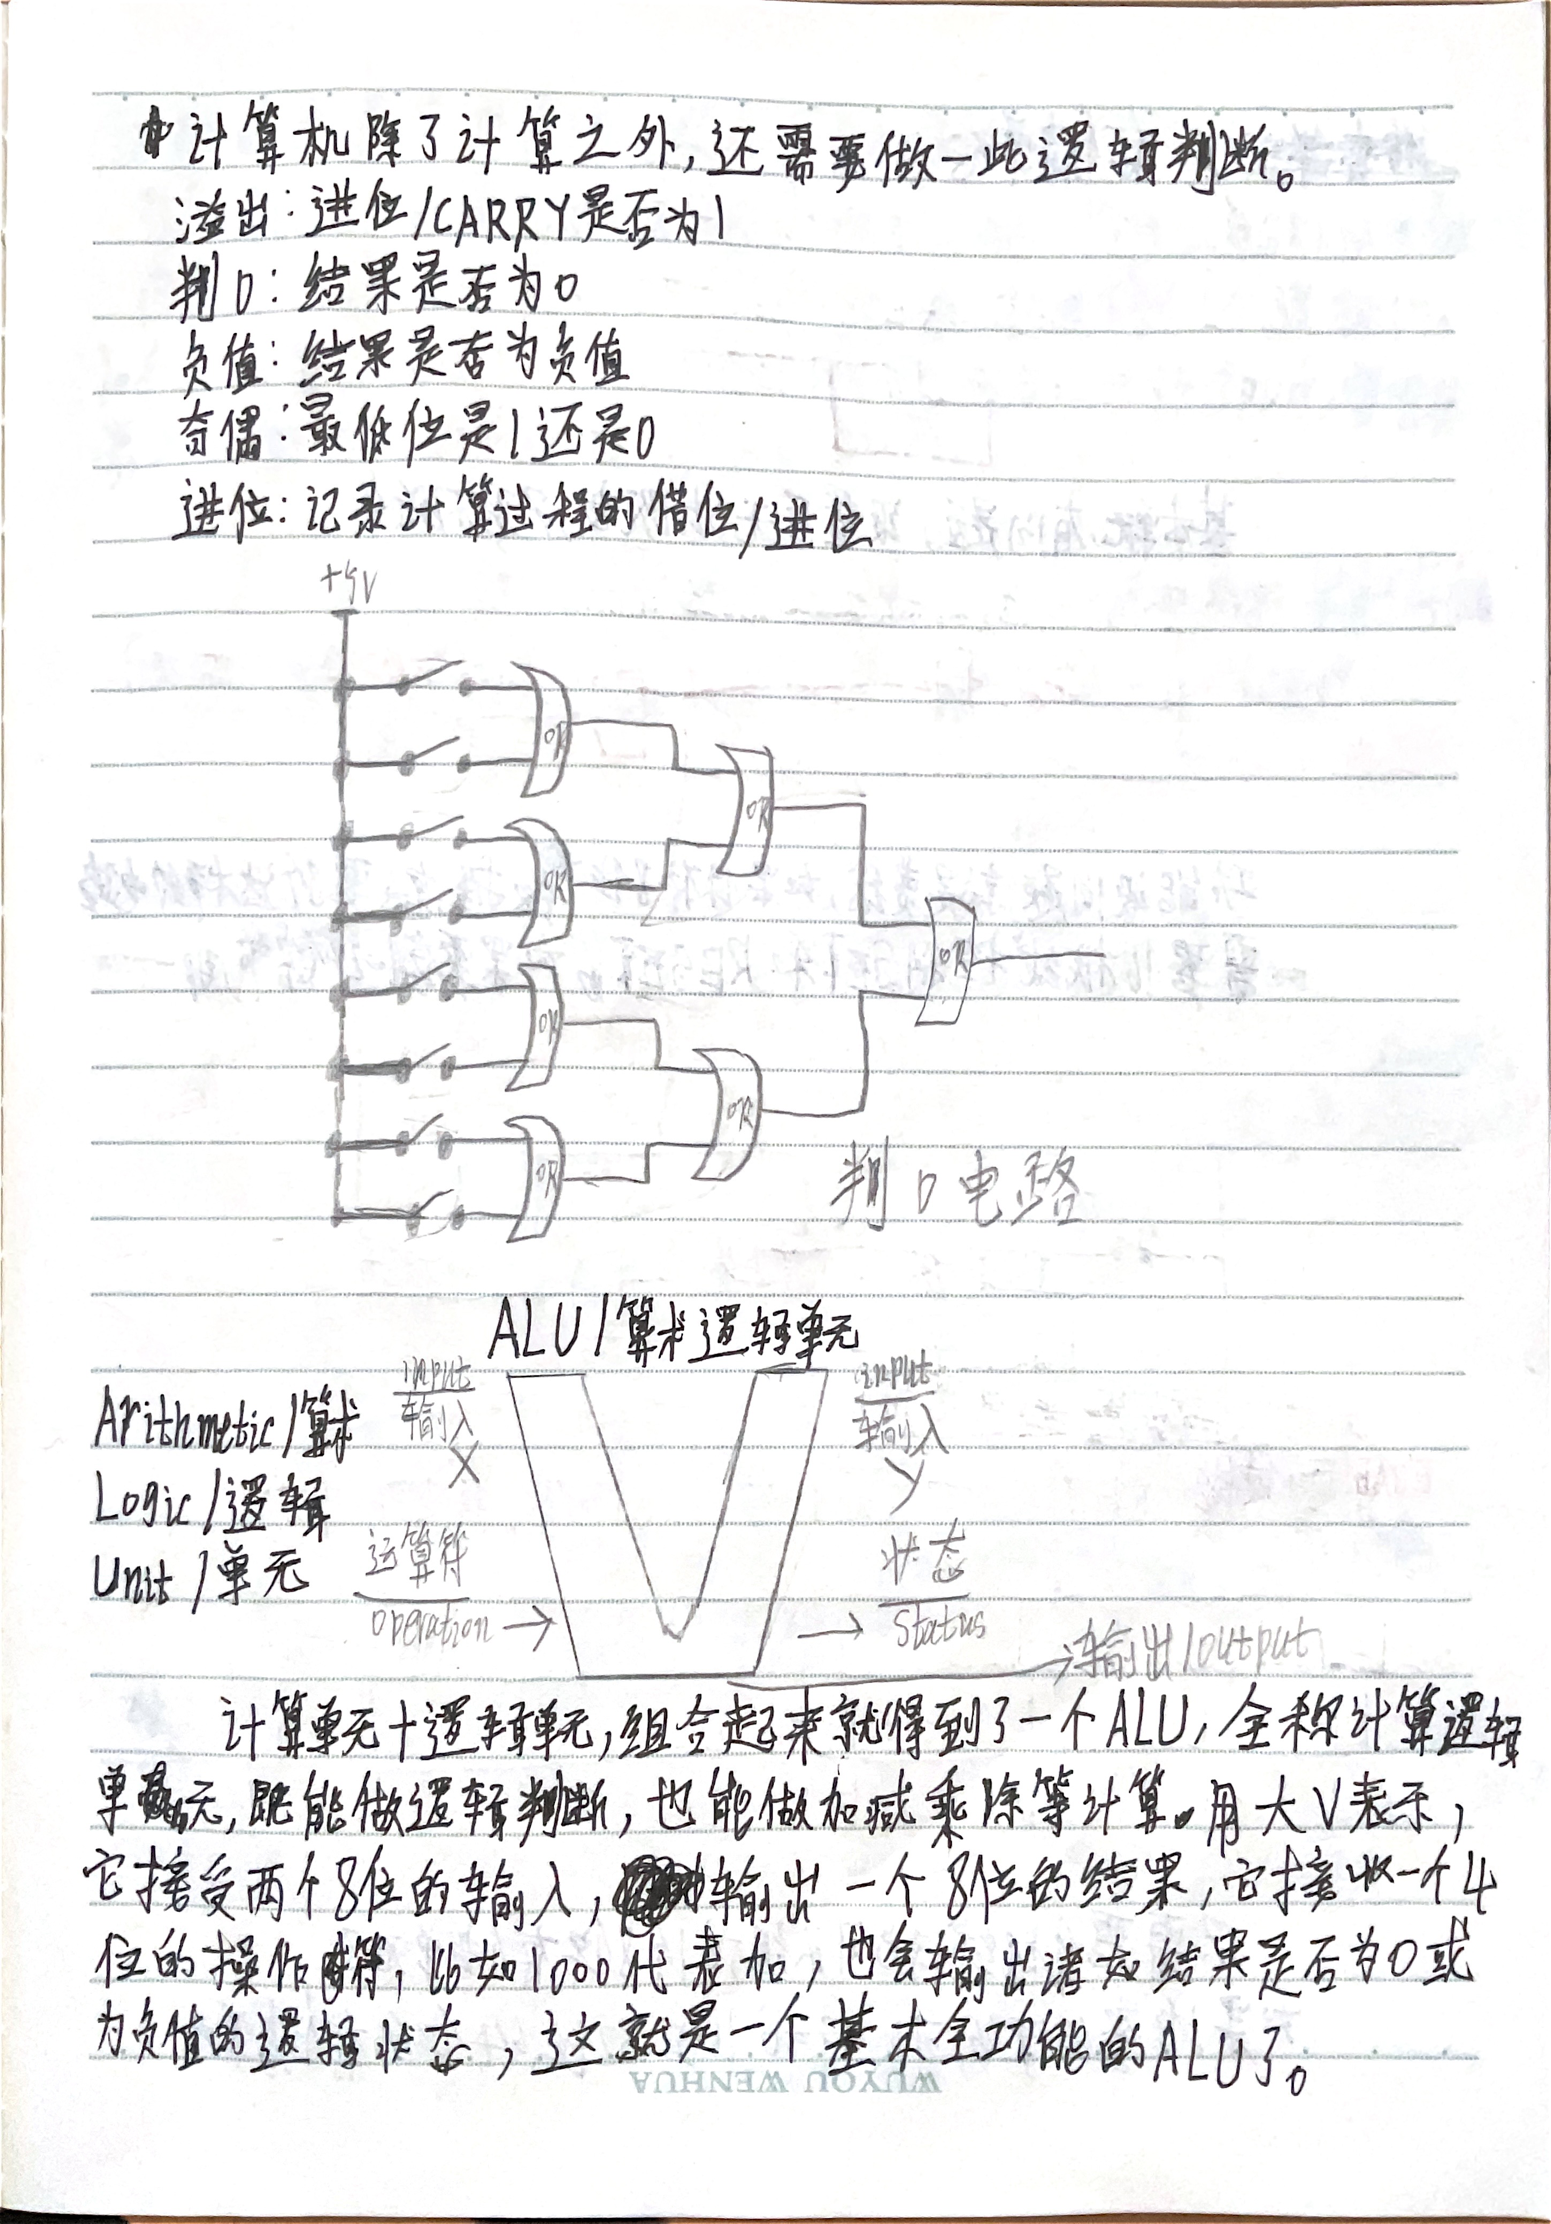 计算机除了计算之外,还需要做一此逻辑判断。
溢出:进位/CARRY是否为1
判0:结果是否为0
负值:结果是否为负值
奇偶:最低位是1还是0
进位:记录计算过程的借位/进位
+5V
OR
OR
OR
OR
OR
OR
OR
判0电路
ALU/算术逻辑单元
input
输入
X
input
输入
Y
Arithmetic/算术
Logic/逻辑
Unit/单元
运算符
operation
状态
Status
输出/output
计算单元+逻辑单元,组合起来就得到了一个ALU,全称计算逻辑
单元,既能做逻辑判断,也能做加减乘除等计算。用大V表示,
它接受两个8位的输入,输出一个8位的结果,它接收一个4
位的操作符,比如1000代表加,也会输出诸如结果是否为0或
为负值的逻辑状态,这就是一个基本全功能的ALU了。
WUYOU WENHUA